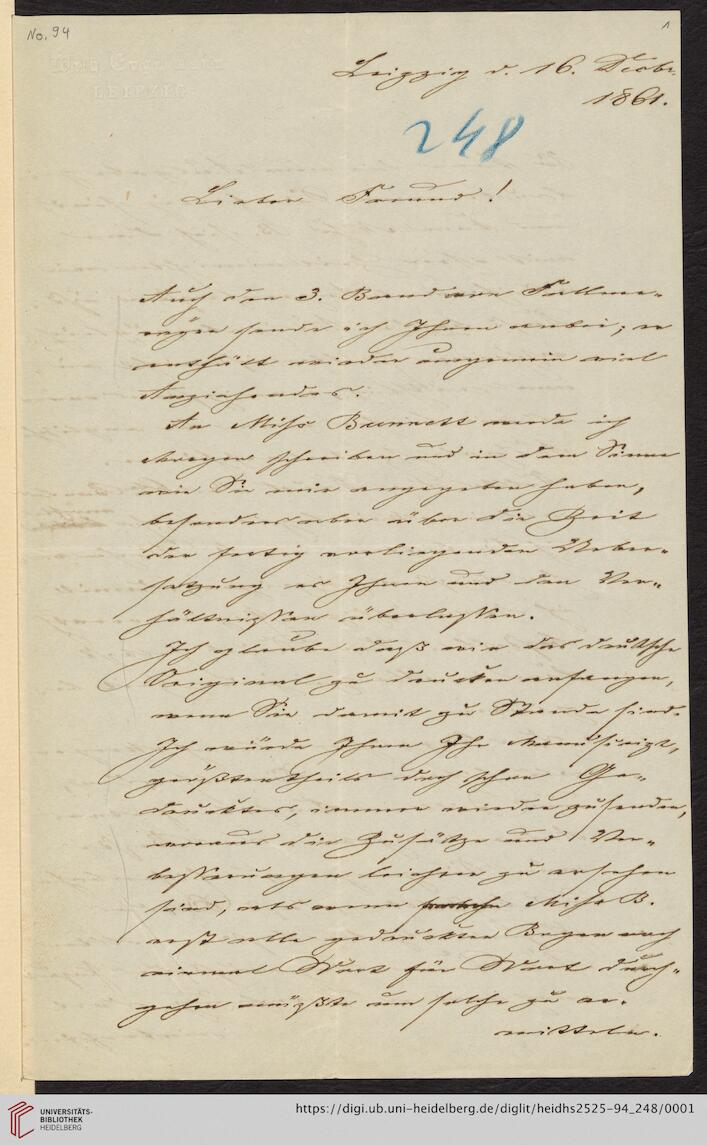 No. 94
1
Wilh. Engelmann
LEIPZIG
Leipzig d. 16. Decbr.
1861.
248
Lieber Freund!
Auch den 3. Band von Fallme-
rayer sende ich Ihnen anbei; er
enthält wieder ungemein viel
Anziehendes.
An Miss Bunnett werde ich
Morgen schreiben und in dem Sinne
wie Sie mir angegeben haben,
besonders aber über die Zeit
der fertig vorliegenden Ueber-
setzung es Ihnen und den Ver-
hältnissen überlassen.
Ich glaube daß wir das deutsche
Original zu drucken anfangen,
wenn Sie damit zu Stande sind.
Ich würde Ihnen Ihr Manuscript,
größtentheils doch schon Ge-
drucktes, immer wieder zusenden,
woraus die Zusätze und Ver-
besserungen leichter zu ersehen
sind, als wenn Miss B.
erst alle gedruckten Bogen noch
einmal Wort für Wort durch-
gehen müßte um solche zu er-
mitteln.
UNIVERSITÄTS-
BIBLIOTHEK
HEIDELBERG
https://digi.ub.uni-heidelberg.de/diglit/heidhs2525-94_248/0001